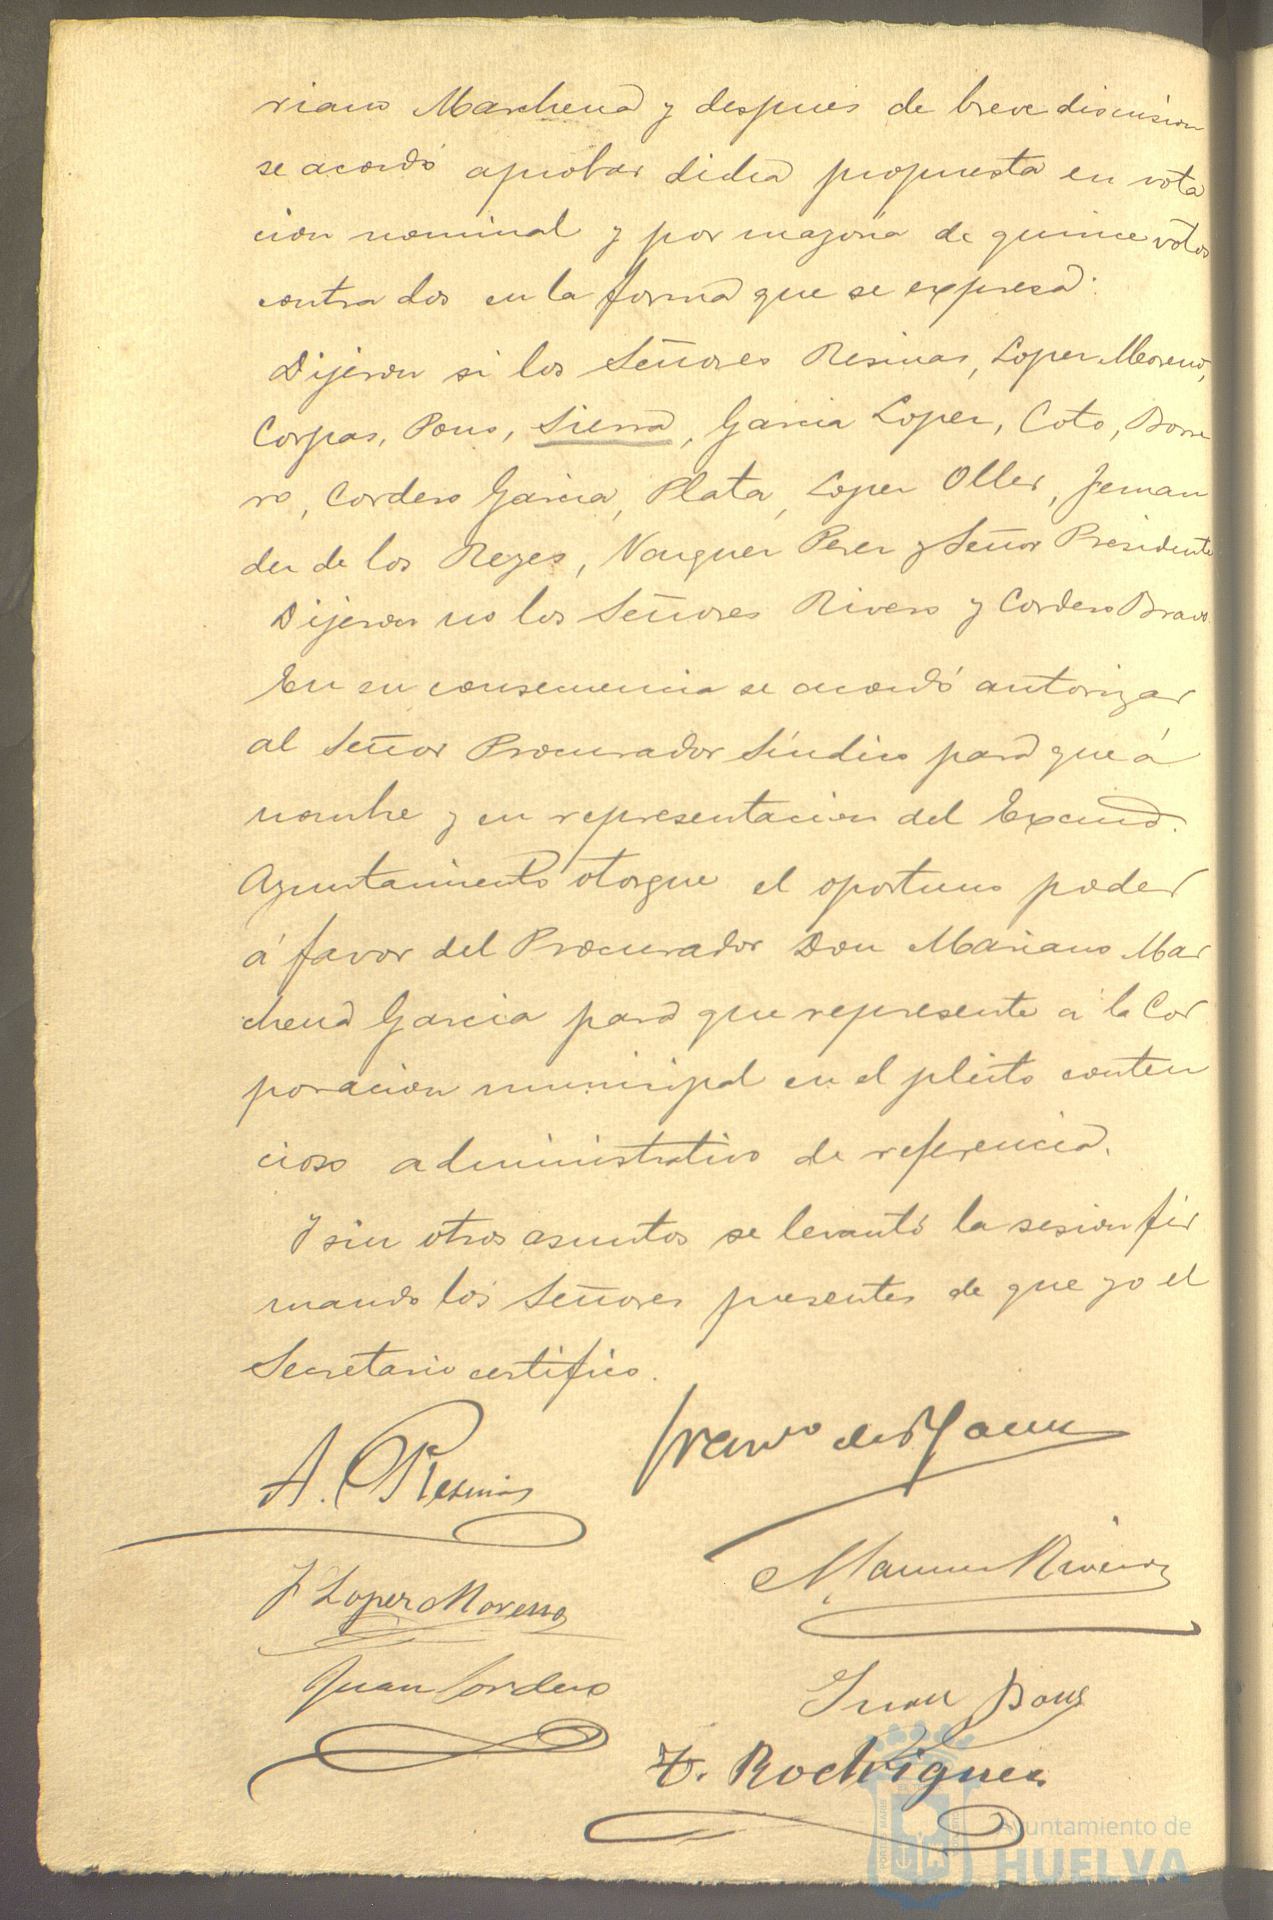 riano Marchena y despues de breve discusion
se acordó aprobar dicha propuesta en vota
cion nominal y por mayoria de quince votos
contra dos en la forma que se expresa:
Dijeron si los Señores Resinas, Lopez Moreno,
Corpas, Pons, Sierra, Garcia Lopez, Coto, Borre
ro, Cordero Garcia, Plata, Lopez Oller, Fernan
dez de los Reyes, Vazquez Perez y Señor Presidente
Dijeron no los Señores Rivero y Cordero Bravo.
En su consecuencia se acordó autorizar
al Señor Procurador Síndico para que á
nombre y en representacion del Excmo.
Ayuntamiento otorgue el oportuno poder
á favor del Procurador Don Mariano Mar
chena Garcia para que represente á la Cor
poracion municipal en el pleito conten
cioso administrativo de referencia.
Y sin otros asuntos se levantó la sesion fir
mando los Señores presentes de que yo el
Secretario certifico.
A. Resinas
J Lopez Moreno
Manuel Rivero
Juan Cordero
Juan Pons
Rodriguez
Ayuntamiento de
HUELVA